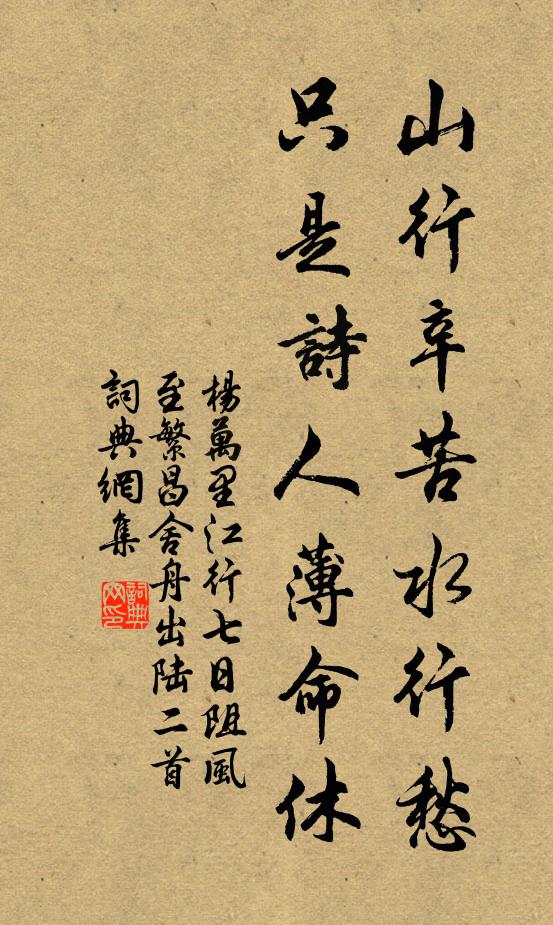 山行辛苦水行愁
只是詩人薄命休
楊萬里江行七日阻風
至繁昌舍舟出陆二首
詞典網集
詞典
网印